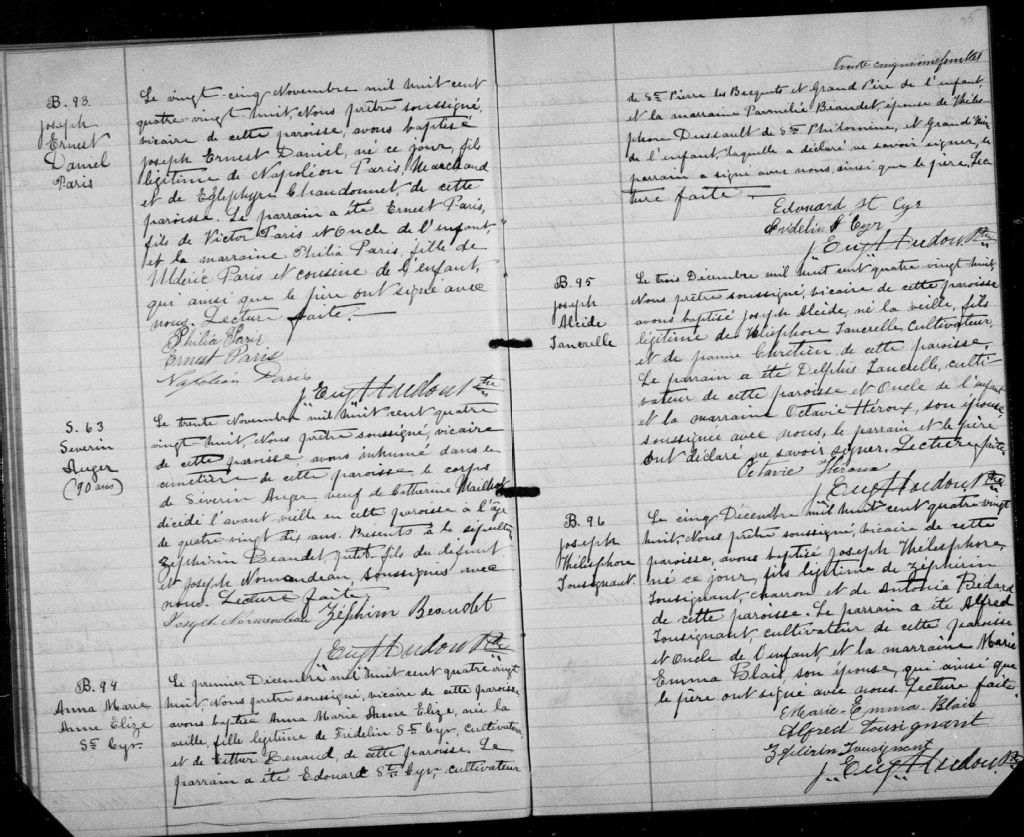 B. 93
Joseph
Ernest
Daniel
Paris
Le vingt-cinq Novembre mil huit cent
quatre vingt huit, Nous prêtre soussigné,
vicaire de cette paroisse, avons baptisé
Joseph Ernest Daniel, né ce jour, fils
légitime de Napoléon Paris, Marchand
et de Eglephyre Chandonnet, de cette
paroisse. Le parrain a été Ernest Paris,
fils de Victor Paris et Oncle de l'enfant
et la marraine Philia Paris, fille de
Ulderic Paris et cousine de l'enfant,
qui ainsi que le père ont signé avec
nous. Lecture faite.
Philia Paris
Ernest Paris
Napoléon Paris
J. Eug. Hudon Ptre
S. 63
Severin
Auger
(90 ans)
Le trente Novembre mil huit cent quatre
vingt huit, Nous prêtre soussigné, vicaire
de cette paroisse avons inhumé dans le
cimetière de cette paroisse le corps
de Séverin Auger veuf de Catherine Mailhot
décédé l'avant veille en cette paroisse à l'âge
de quatre vingt dix ans. Présents à la sépulture
Zéphirin Beaudet, petit fils du défunt
et Joseph Normandeau, soussignés avec
nous. Lecture faite.
Joseph Normendeau Zéphirin Beaudet
J. Eug. Hudon Ptre
B. 94
Anna Marie
Anne Elize
St Cyr.
Le premier Décembre mil huit cent quatre vingt
huit, Nous prêtre soussigné, vicaire de cette paroisse
avons baptisé Anna Marie Anne Elize, née la
veille, fille légitime de Fridelin St Cyr, cultivateur
et de Esther Denaud, de cette paroisse. Le
parrain a été Edouard St Cyr, cultivateur
35
Trente cinquième feuillet
de St Pierre les Becquets et Grand Père de l'enfant,
et la marraine Parmélie Beaudet, épouse de Théles-
phore Dussault de Ste Philomène, et Grand'Mère
de l'enfant, laquelle a déclaré ne savoir signer, le
parrain a signé avec nous ainsi que le père. Lec
ture faite.
Edouard St Cyr
Fridelin St Cyr
J. Eug. Hudon Ptre
B. 95
Joseph
Alcide
Tancrelle
Le trois Décembre mil huit cent quatre vingt huit,
Nous prêtre soussigné, vicaire de cette paroisse
avons baptisé Joseph Alcide, né la veille, fils
légitime de Thélisphore Tancrelle, Cultivateur,
et de Jeanne Chrétien, de cette paroisse.
Le parrain a été Delphis Tancrelle, culti-
vateur de cette paroisse et Oncle de l'enfant
et la marraine Octavie Héroux, son épouse,
soussignée avec nous, le parrain et le père
ont déclaré ne savoir signer. Lecture faite.
Octavie Héroux
J. Eug. Hudon Ptre
B. 96
Joseph
Thélesphore
Tousignant
Le cinq Décembre mil huit cent quatre vingt
huit, Nous prêtre soussigné, vicaire de cette
paroisse, avons baptisé Joseph Thélesphore,
né ce jour, fils légitime de Zéphirin
Tousignant, charron et de Antonia Bédard
de cette paroisse. Le parrain a été Alfred
Tousignant cultivateur de cette paroisse
et Oncle de l'enfant, et la marraine Marie
Emma Blais, son épouse, qui ainsi que
le père ont signé avec nous. Lecture faite.
Marie-Emma Blais
Alfred Tousignant
Zéphirin Tousignant
J. Eug. Hudon Ptre